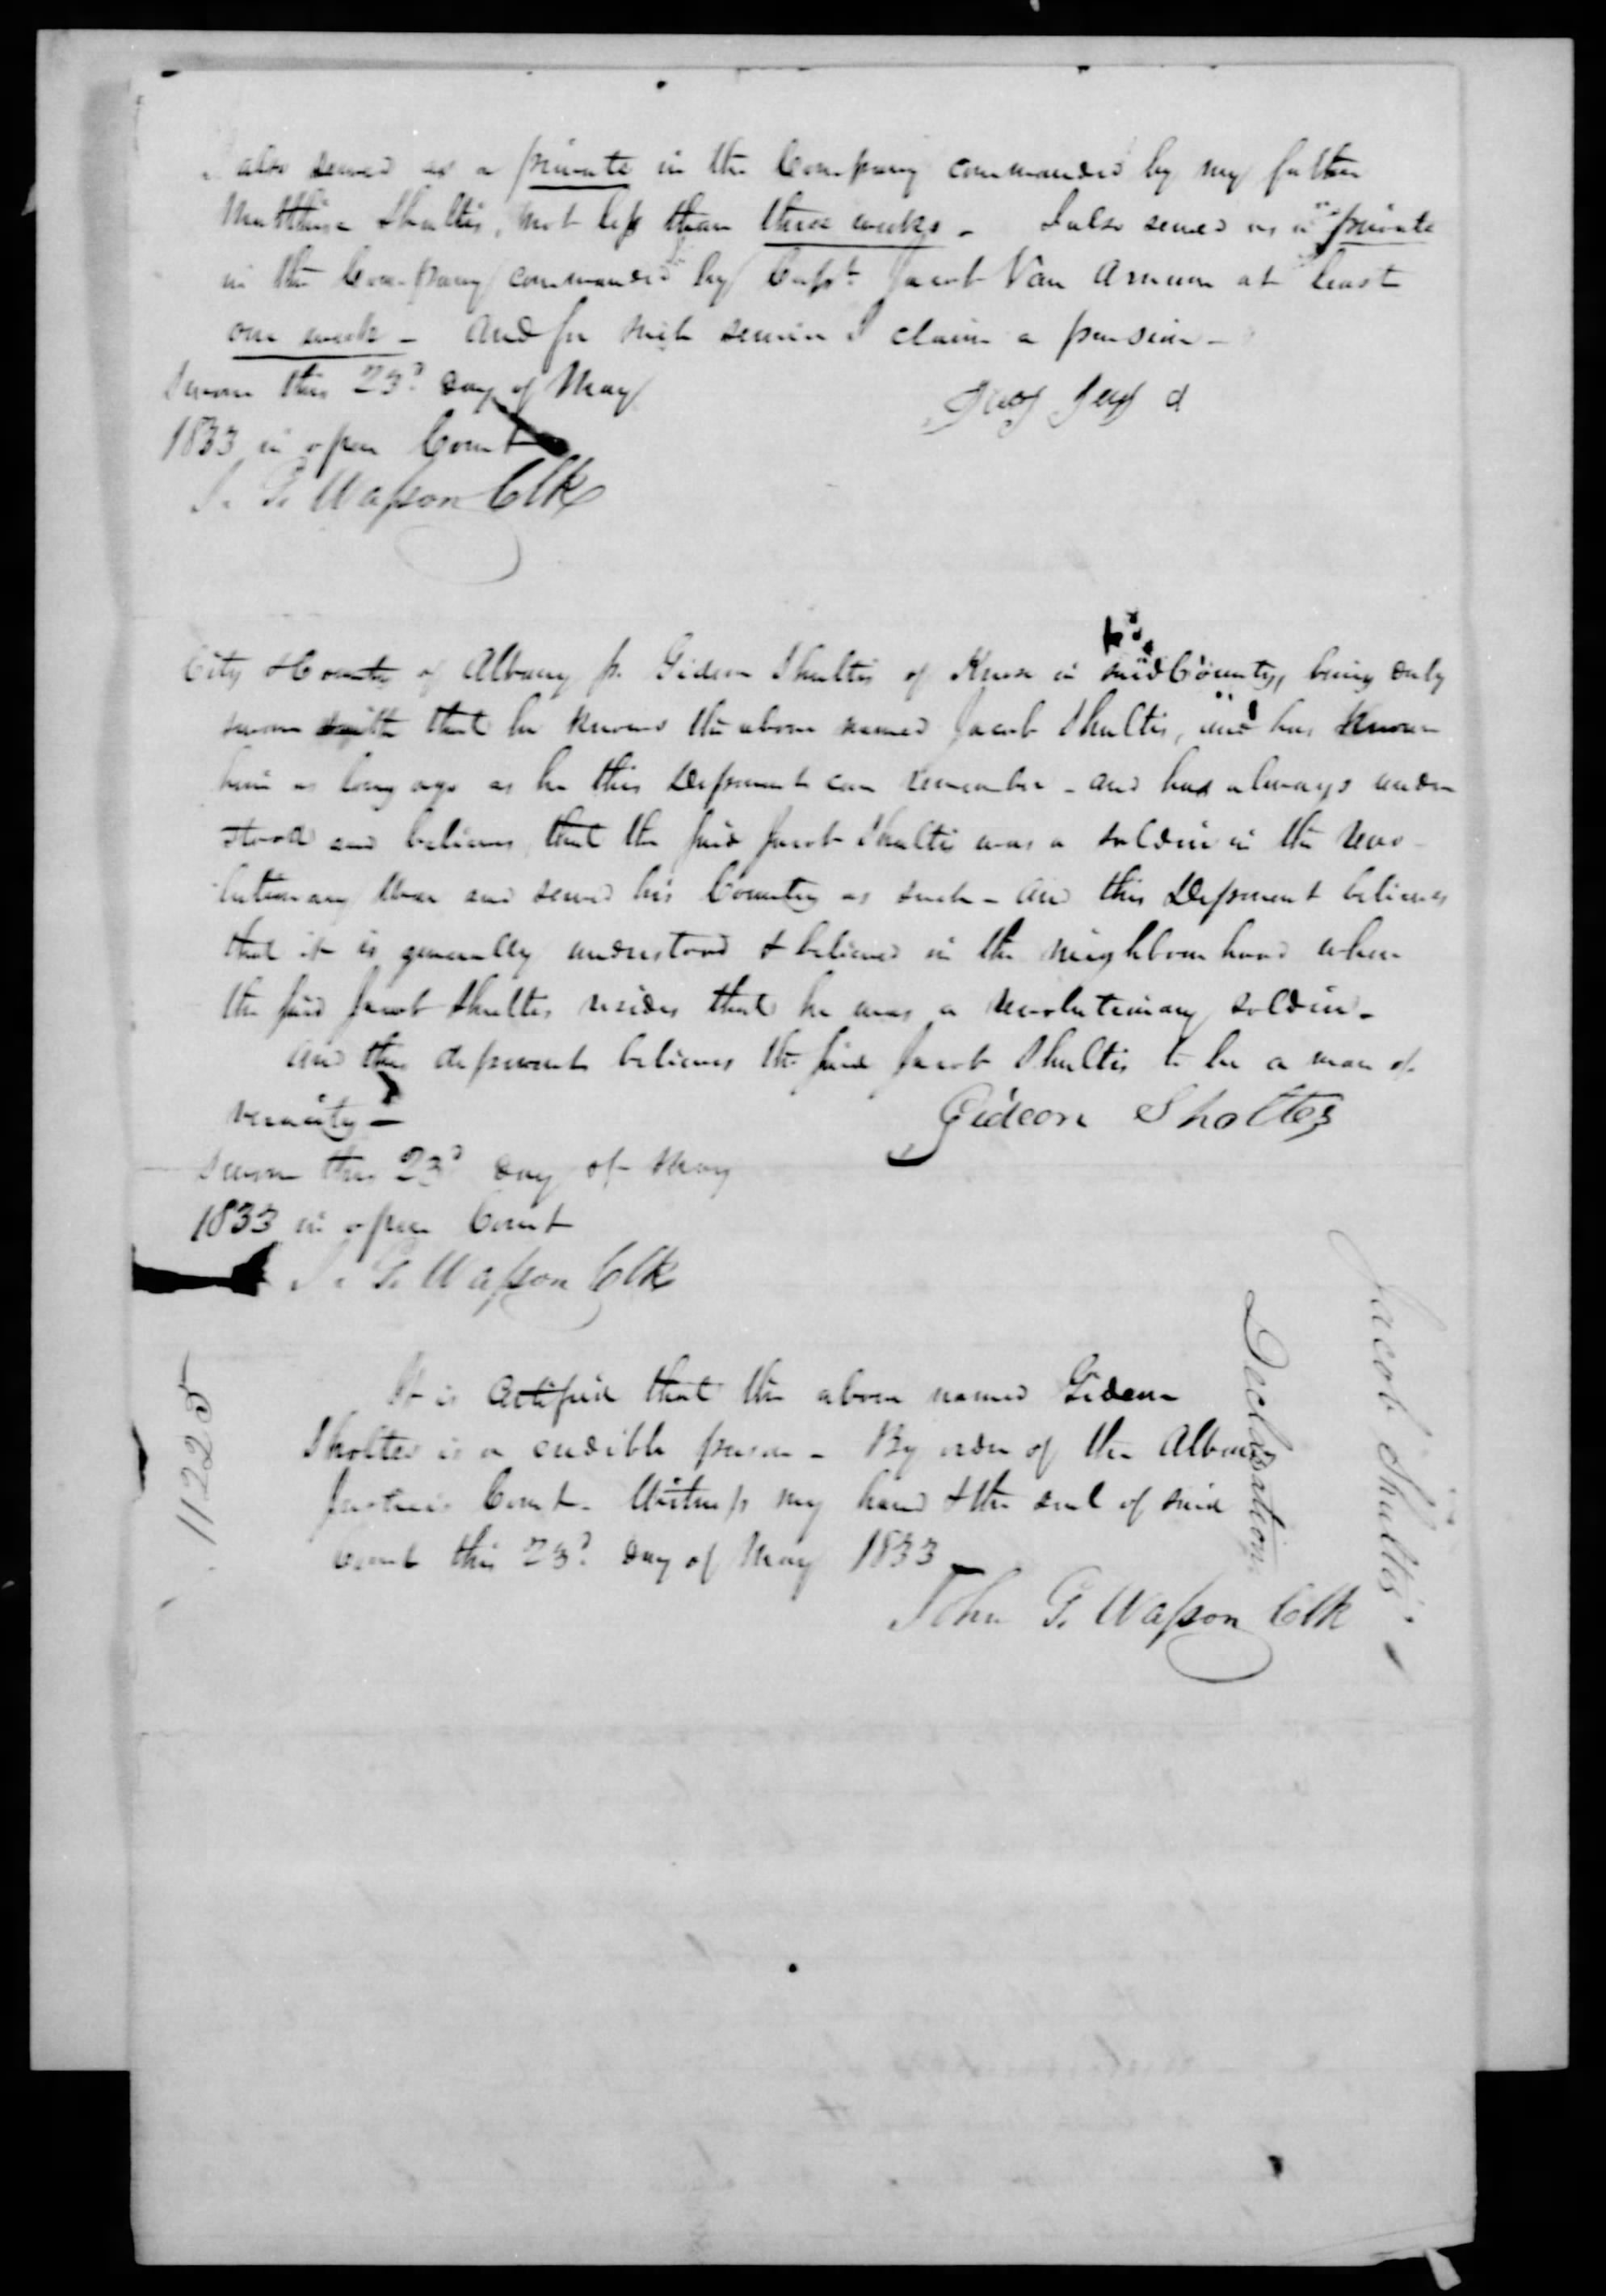 I also served as a private in the Company commanded by my father
Matthias Shultis, not less than three weeks - I also served as a private
in the Company commanded by Capt. Jacob Van Arnum at least
one week - and for such service I claim a pension -
Sworn this 23d day of May
1833 in open Court
J. G. Wasson Clk
City & County of Albany ss. Gideon Shultis of Knox in said County, being duly
sworn saith that he knows the above named Jacob Shultis, and has known
him as long ago as he this Deponent can remember - and has always under
stood and believes that the said Jacob Shultis was a soldier in the Revo-
lutionary War and served his Country as such - and this Deponent believes
that it is generally understood & believed in the neighbourhood where
the said Jacob Shultis resides that he was a revolutionary soldier -
and this deponent believes the said Jacob Shultis to be a man of
veracity -
Gideon Sholtes
Sworn this 23d day of May
1833 in open Court
J. G. Wasson Clk
It is certified that the above named Gideon
Sholtes is a credible person - By order of the Albany
Justices Court - Witness my hand & the seal of said
Court this 23d day of May 1833 -
John G. Wasson Clk
Jacob Shultis
Declaration
11225